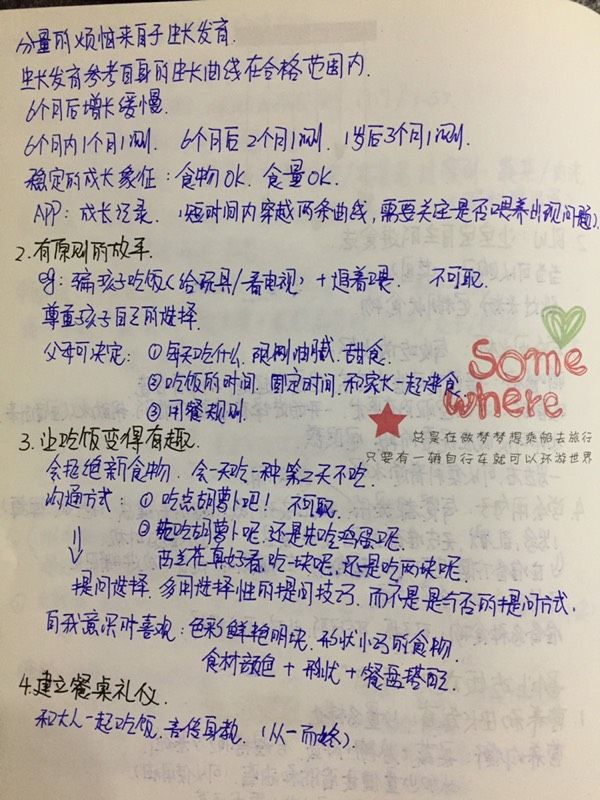 分量的烦恼来自于生长发育.
生长发育参考自身的生长曲线在合格范围内.
6个月后增长缓慢.
6个月内1个月1测. 6个月后2个月1测. 1岁后3个月1测.
稳定的成长象征：食物OK. 食量OK.
APP：成长记录. (短时间内穿越两条曲线,需要关注是否喂养出现问题)
2.有原则的放手.
eg：骗孩子吃饭(给玩具/看电视)+追着喂. 不可取.
尊重孩子自己的选择.
父母可决定：①每天吃什么. 限制油腻. 甜食.
②吃饭的时间. 固定时间. 和家长一起进食.
③用餐规则.
Some where
总是在做梦梦想乘船去旅行
只要有一辆自行车就可以环游世界
3.让吃饭变得有趣.
会拒绝新食物. 会一天吃一种第2天不吃.
沟通方式：①吃点胡萝卜吧! 不可取.
②先吃胡萝卜呢.还是先吃鸡蛋呢.
西兰花真好看吃一块呢,还是吃两块呢.
提问选择. 多用选择性的提问技巧. 而不是是与否的提问方式.
自我意识时喜欢：色彩鲜艳明快. 形状小巧的食物.
食材颜色+形状+餐盘搭配.
4.建立餐桌礼仪.
和大人一起吃饭. 言传身教. (从一而终).